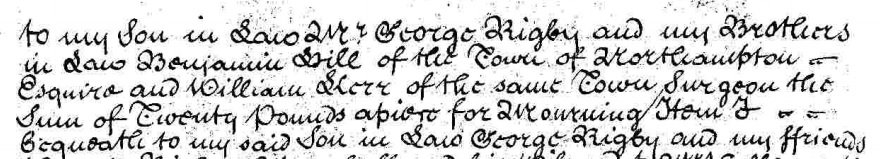 to my Son in Law Mr. George Rigby and my Brothers
in Law Benjamin Gill of the Town of Northampton =
Esquire and William Kerr of the same Town Surgeon the
Sum of Twenty Pounds apiece for Mourning / Item I = =
bequeath to my said Son in Law George Rigby and my ffriends